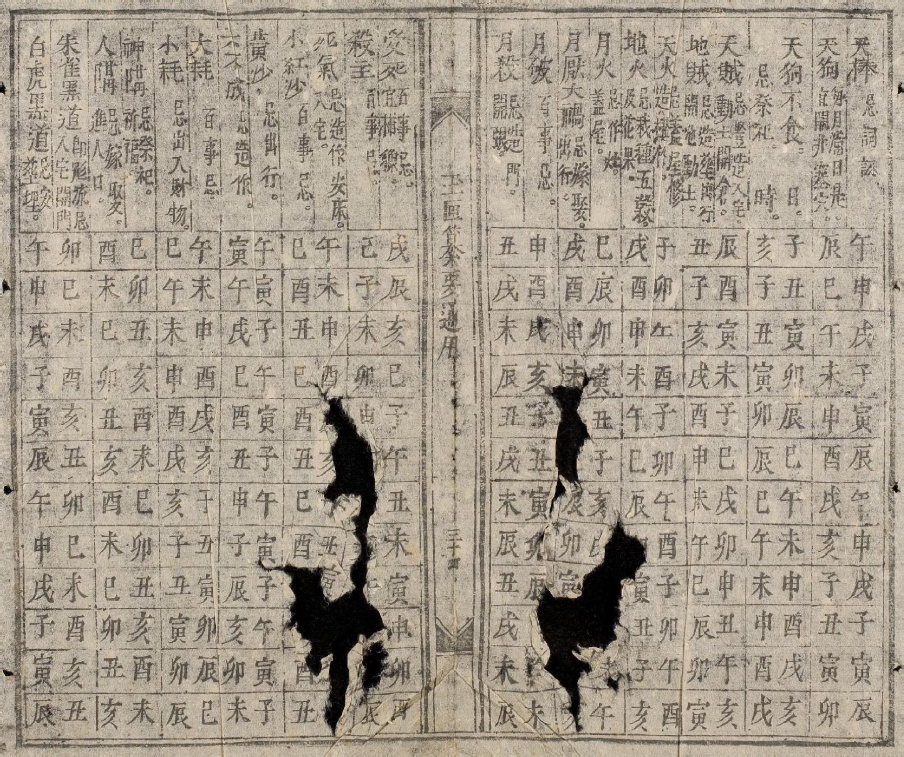 天棒 忌詞訟 午申戌寅辰午申戌子寅辰
天狗 每月當日是。宜開井塞穴。 辰巳午未申酉戌亥子丑寅卯
天狗不食。 日。 子丑寅卯辰巳午未申酉戌亥
忌祭祀 時。 亥子丑寅卯辰巳午未申酉戌
天賊 忌豎造入宅動土開倉。 辰酉寅未子巳戌卯申丑午亥
地賊 忌造葬開行開池動土。 丑子亥戌酉申未午巳辰卯寅
天火 忌蓋屋修造作 子卯午酉子卯午酉子卯午酉
地火 忌栽種五穀。及花果。 戌酉申未午巳辰寅丑子亥
月火 忌作灶蓋屋。 巳辰卯寅丑子亥午
月厭大禍 忌嫁娶。出行。 戌酉申未卯寅亥
月破 百事忌。 申酉戌亥子丑寅卯辰未
月殺 忌造門。開 丑戌未辰丑戌未辰丑戌未辰
玉匣 要通用 三十四
受死 百事忌。宜畋獵。 戌辰亥巳子午丑未寅申卯酉
殺主 百事忌 巳子未卯申辰
死氣 忌造作安床。入宅。 午未亥丑寅
小紅沙 百事忌。 巳酉丑巳酉丑酉丑酉丑
黃沙 忌出行。 午寅子午寅子午寅子午寅子
天不成 忌造作。 寅午戌巳酉丑申子辰亥卯未
大耗 百事忌 午未申酉戌亥子丑寅卯辰巳
小耗 忌出入財物。 巳午未申酉戌亥子丑寅卯辰
神隔 忌祭祀。祈福。 巳卯丑亥酉未巳卯丑亥酉未
人隔 忌嫁娶。進人口。 酉未巳卯丑亥酉未巳卯丑亥
朱雀黑道 忌入宅開門 卯巳未酉亥丑卯巳未酉亥丑
白虎黑道 忌安葬埋。 午申戌子寅辰午申戌子寅辰